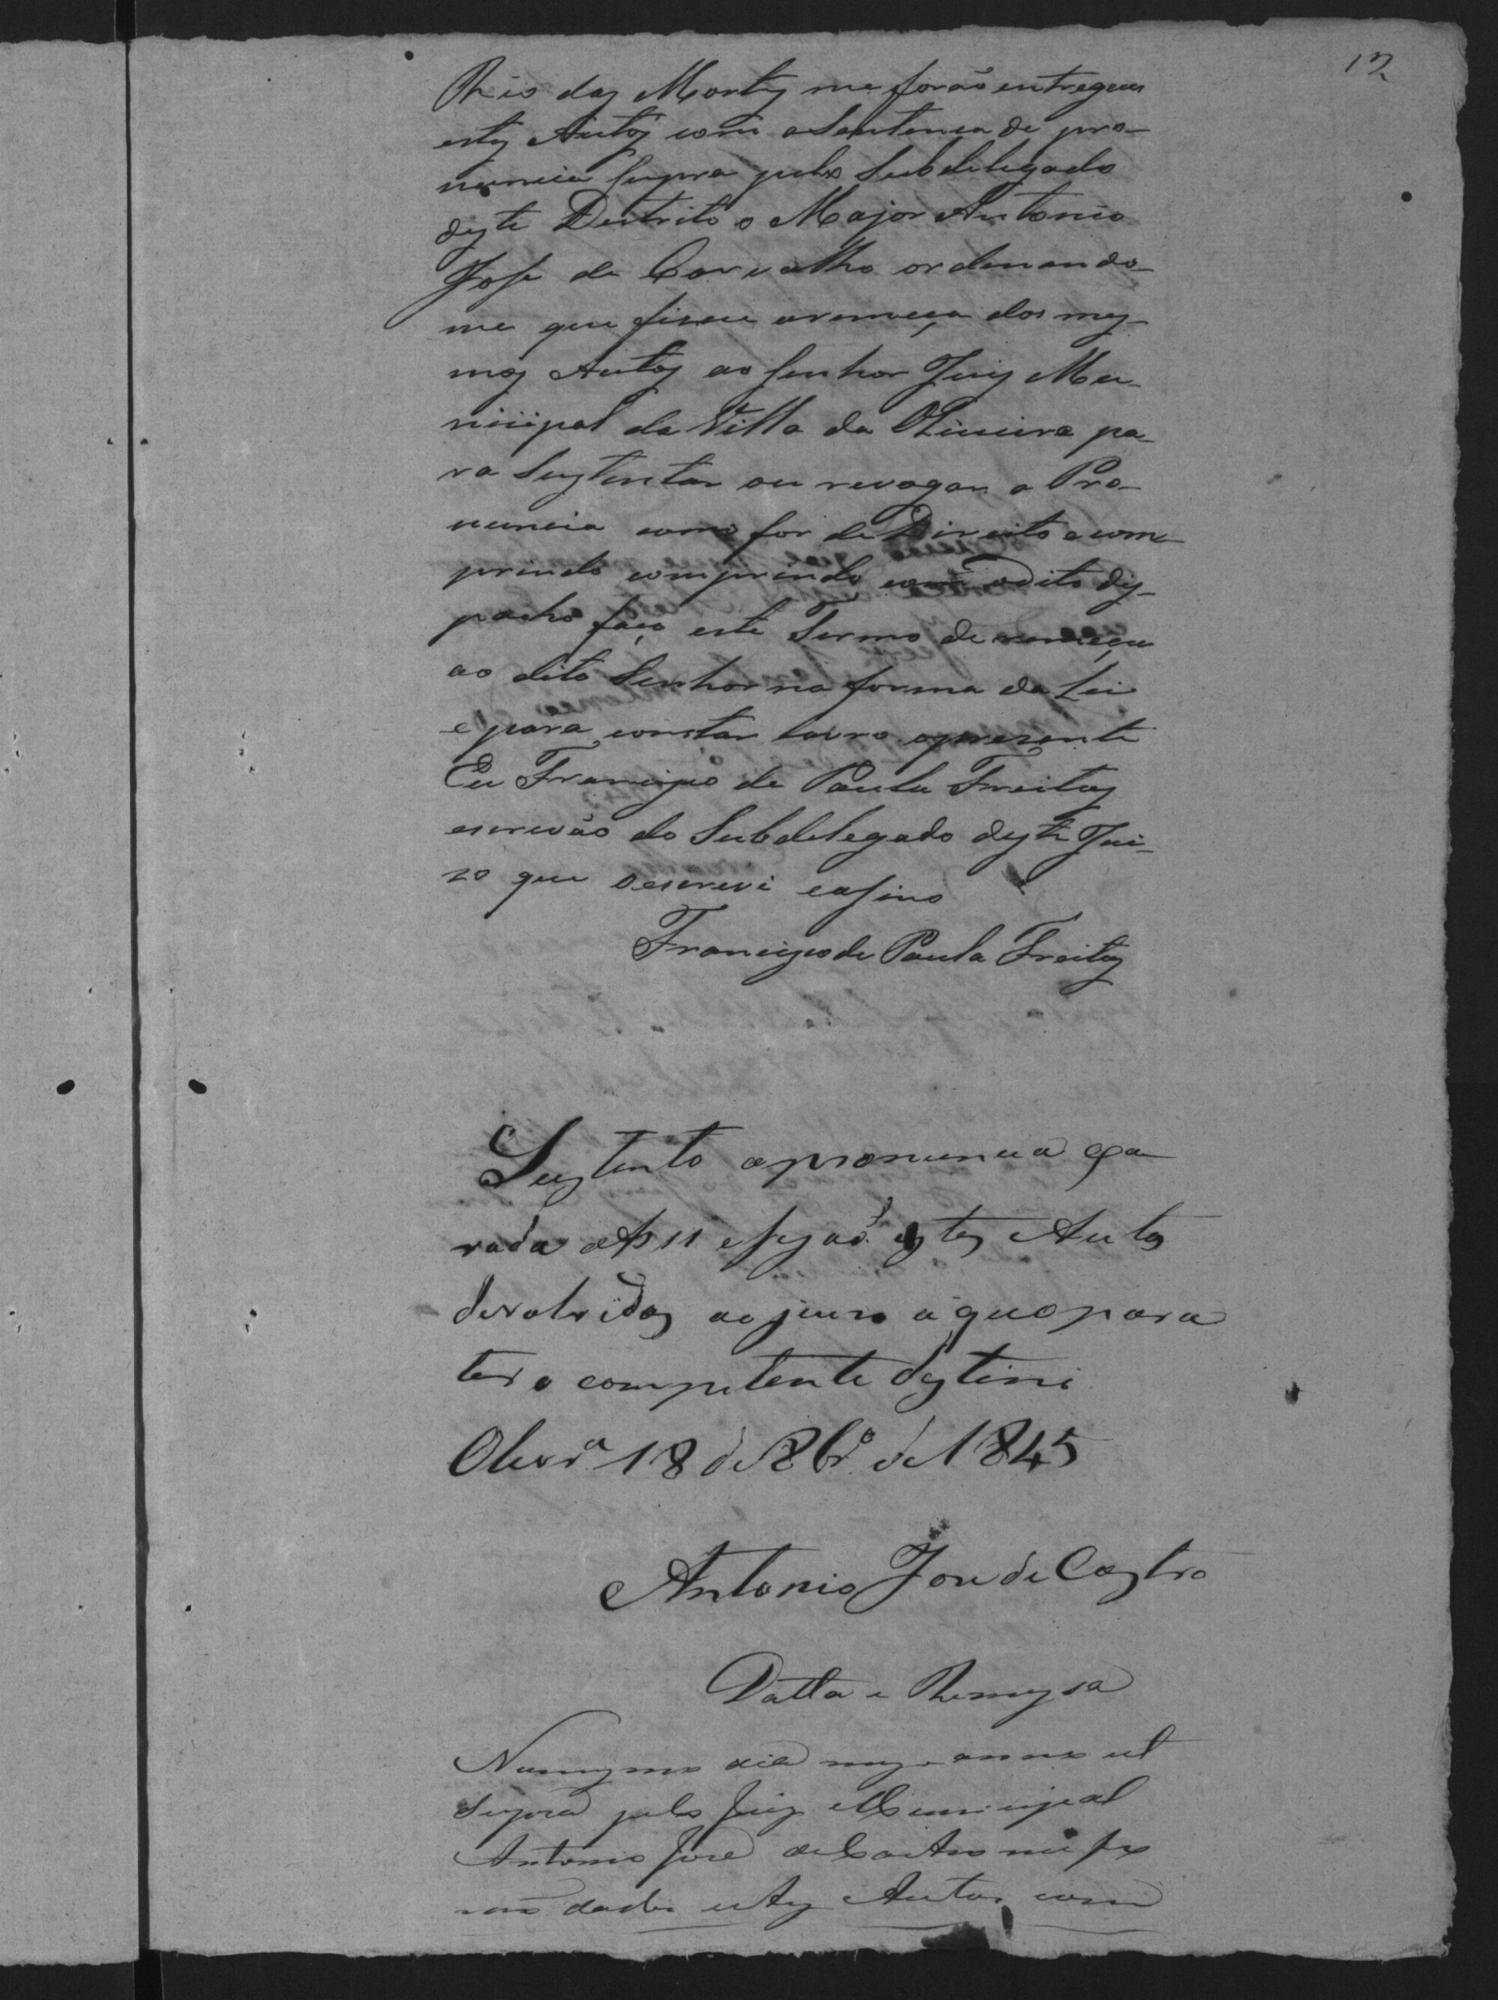 12
Rio das Mortes me forão entregues
estes Autos com a Sentença de pro-
nuncia Supra pelo Subdelegado
deste Destrito o Major Antonio
Jose de Carvalho ordenando-
me que fisese aremeça dos mes-
mos Autos ao Senhor Juis Mu-
nicipal da Villa da Oliveira pa-
ra Sustentar ou revogar a Pro-
nuncia como for de Direito e com-
prindo comprindo com o dito des-
pacho faço este Termo de remeça
ao dito Senhor na forma da Lei
e para constar lavro opresente
Eu Francisco de Paula Freitas
escrivão do Subdelegado deste Jui-
zo que o escrevi easino
Francisco de Paula Freitas
Sustento apronuncia exa
rada af 11 esejaõ estes Autos
devolvidos ao juizo a quo para
ter o competente destino
Olivrª 18 de 8brº de 1845
Antonio Jose de Castro
Datta e Remessa
No mesmo dia mes e anno ut
Supra pelo Juiz Municipal
Antonio José de Castro me fo
raõ dados estes Autos com